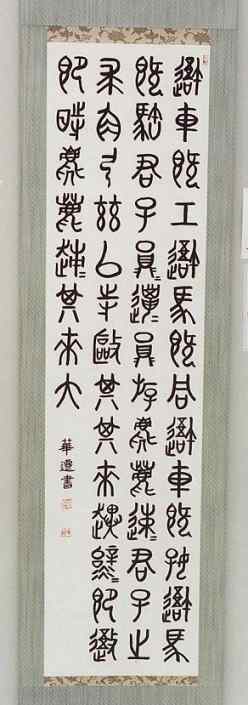 吾車既工吾馬既同吾車既好吾馬
既駘君子員邋=員斿麀鹿速=君子之
求角弓茲以寺敺其其來趩=即吾
即時麀鹿趚=其來大
華遵書